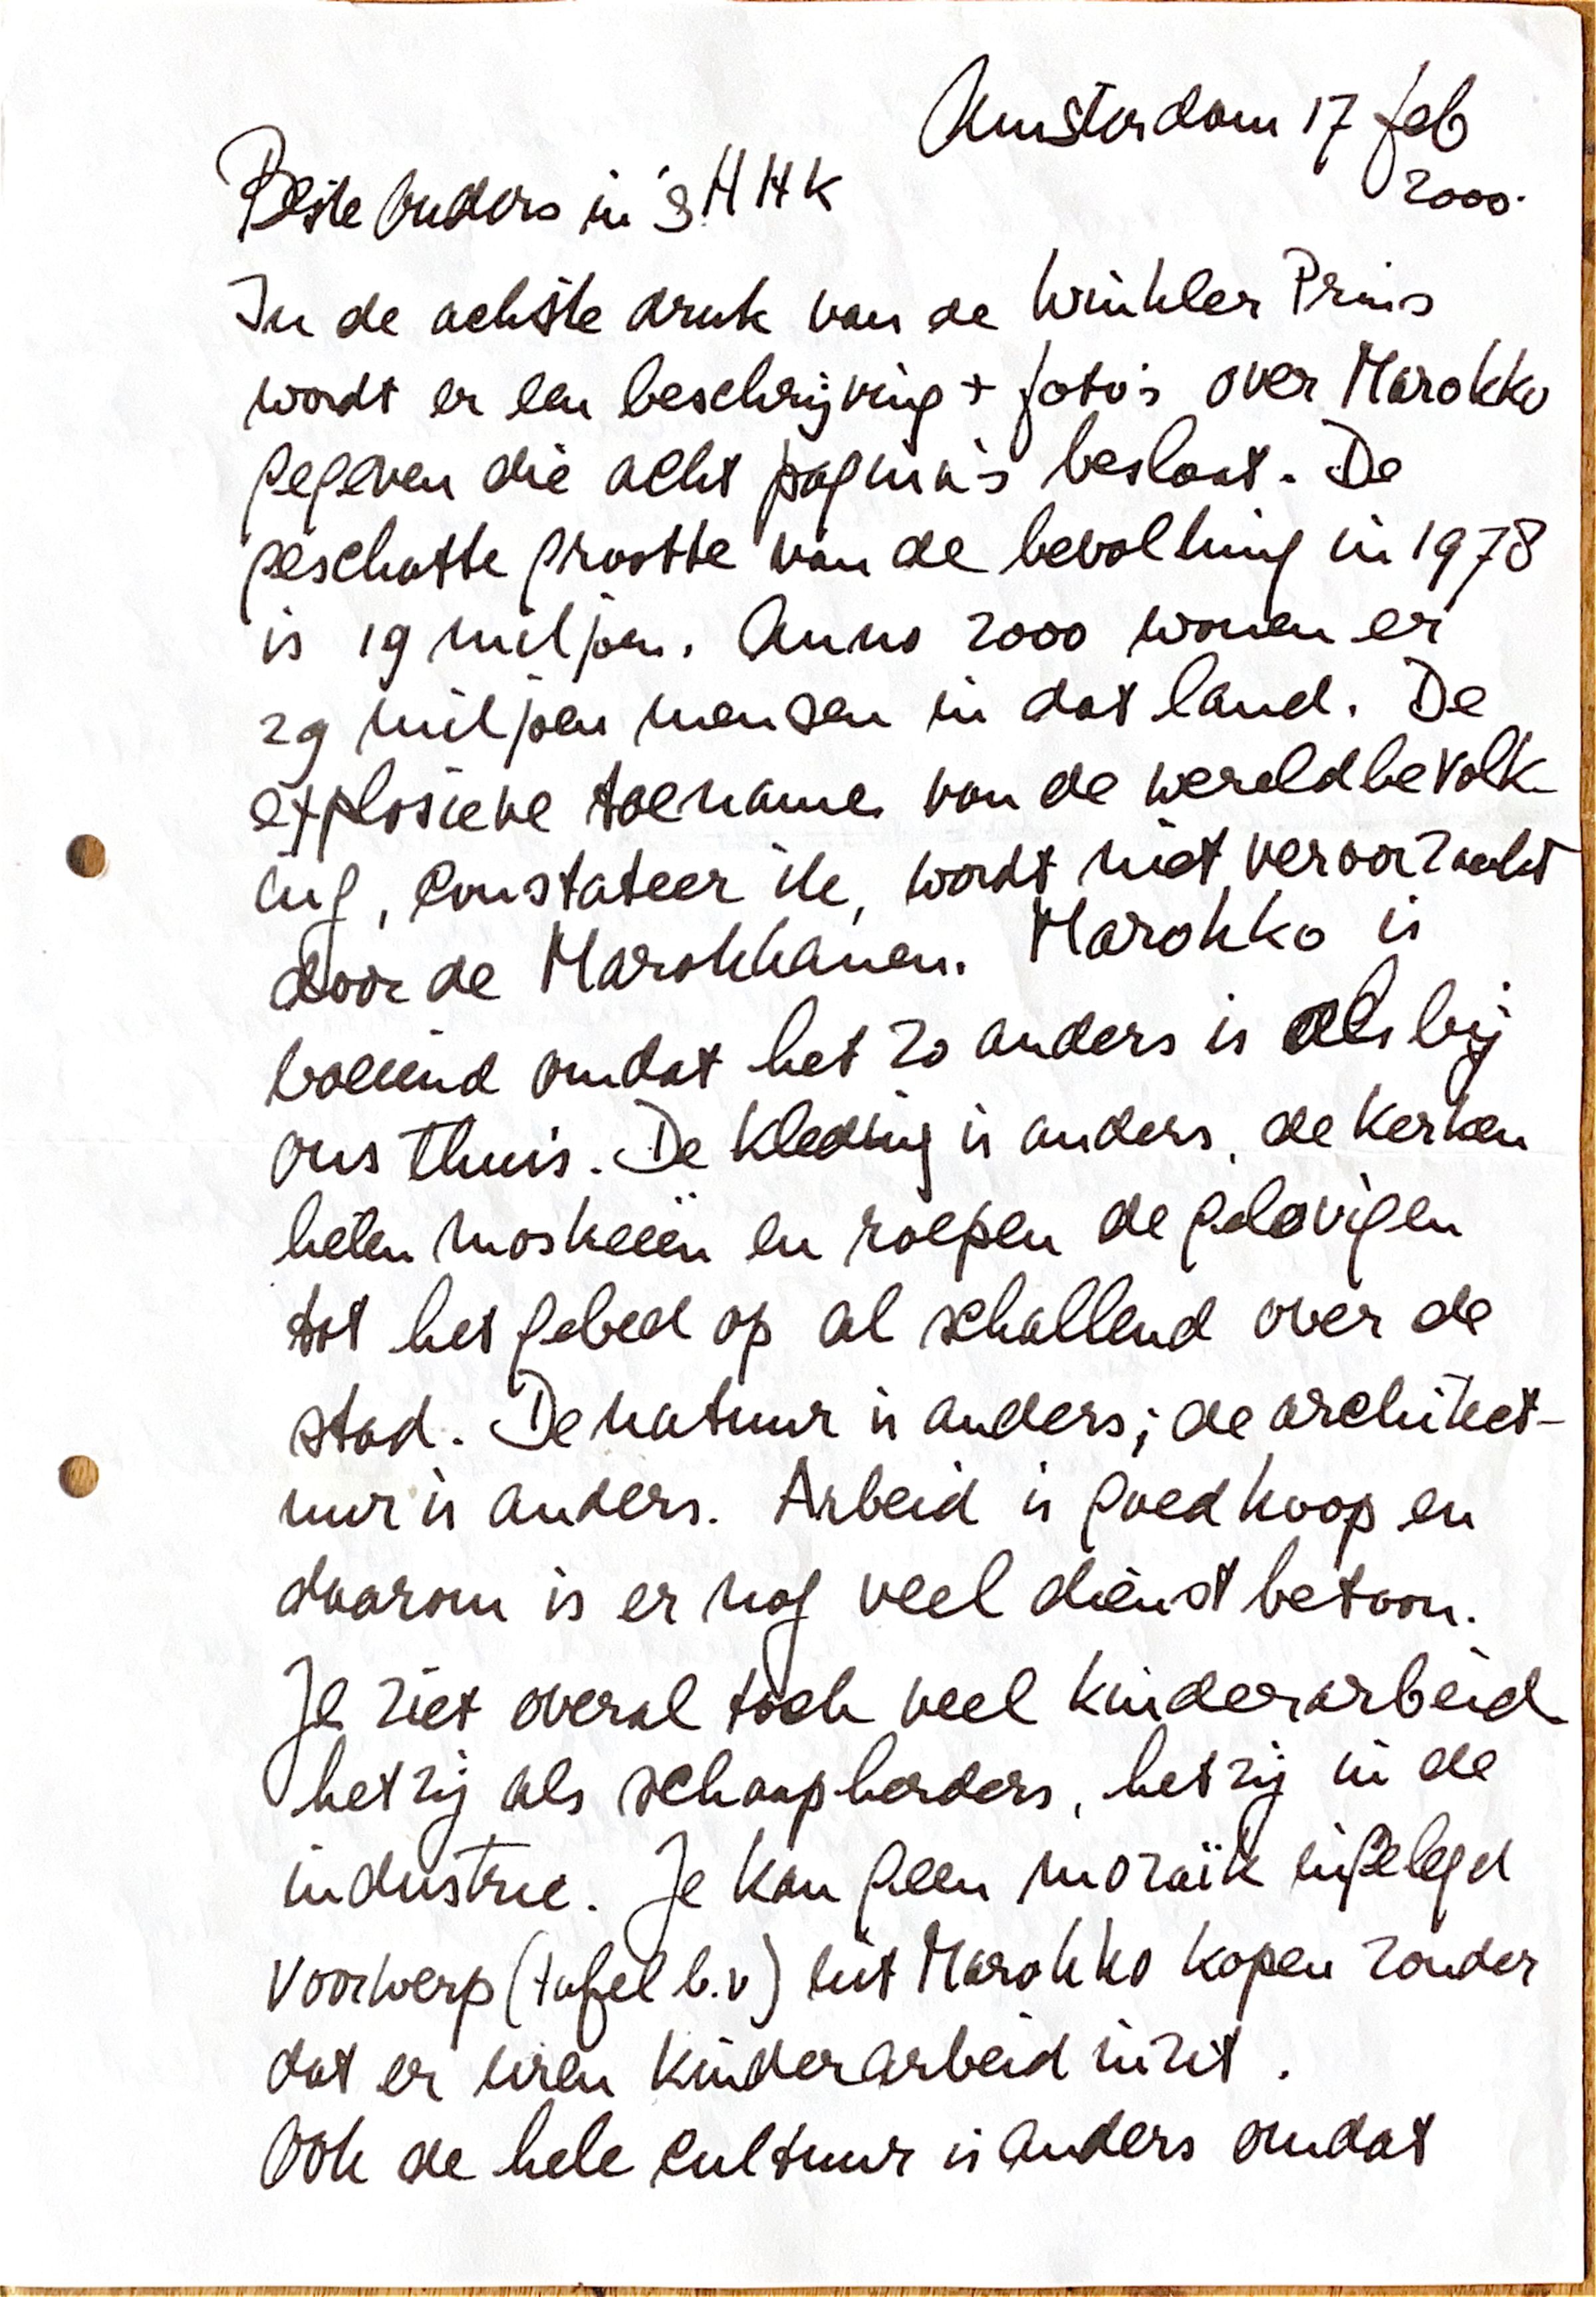 Amsterdam 17 feb
2000.
Beste Ouders in 's HHK
In de achtste druk van de Winkler Prins
wordt er een beschrijving + foto's over Marokko
gegeven die acht pagina's beslaat. De
geschatte grootte van de bevolking in 1978
is 19 miljoen. Anno 2000 wonen er
29 miljoen mensen in dat land. De
explosieve toename van de wereldbevolk-
ing, constateer ik, wordt niet veroorzaakt
door de Marokkanen. Marokko is
boeiend omdat het zo anders is als bij
ons thuis. De kleding is anders, de kerken
heten moskeeën en roepen de gelovigen
tot het gebed op al schallend over de
stad. De natuur is anders; de architect-
uur is anders. Arbeid is goedkoop en
daarom is er nog veel dienstbetoon.
Je ziet overal toch veel kinderarbeid
hetzij als schaapherders, hetzij in de
industrie. Je kan geen mozaïk ingelegd
voorwerp (tafel b.v) uit Marokko kopen zonder
dat er uren kinderarbeid inzit.
Ook de hele cultuur is anders omdat